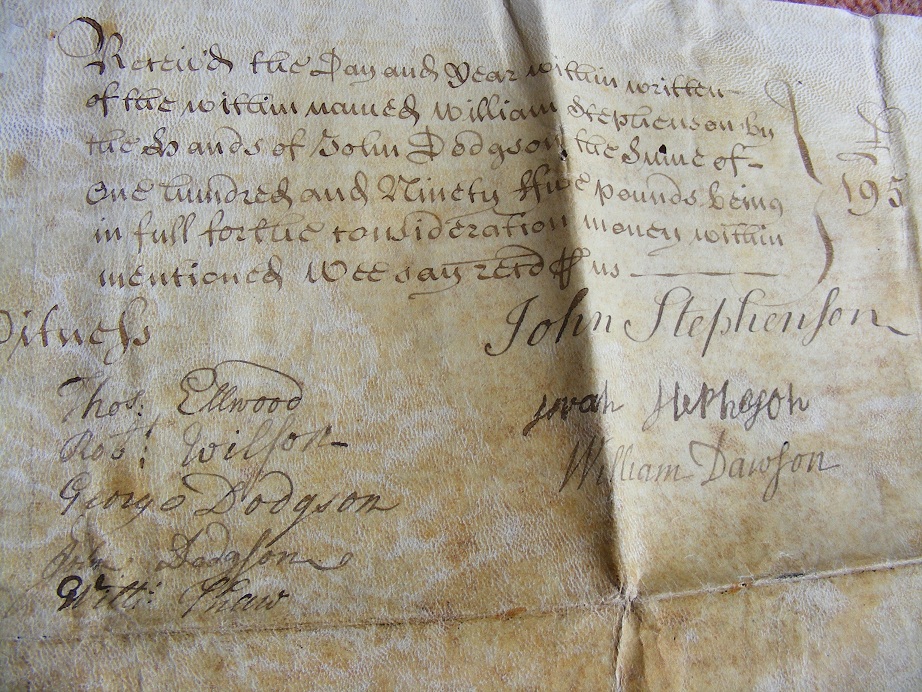 Receiv'd the Day and Year within written
of the within named William Stephenson by
the Hands of John Dodgson the Sume of
One hundred and Ninety ffive pounds being
in full for the consideration money within
mentioned Wee say recd P us
£
195
Witness
John Stephenson
Thos: Ellwood
Robt: Wilson
George Dodgson
Dodgson
Willi:
Stepheson
William Dawson